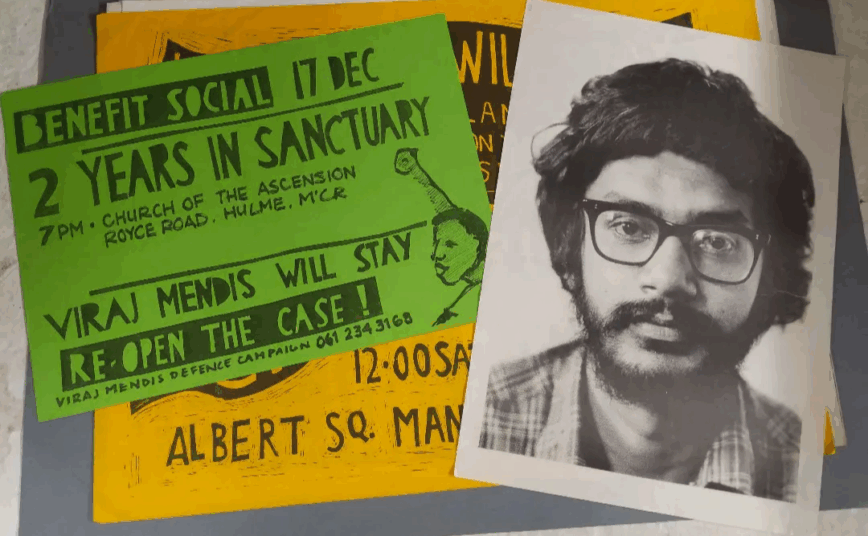 BENEFIT SOCIAL 17 DEC
2 YEARS IN SANCTUARY
7PM · CHURCH OF THE ASCENSION
ROYCE ROAD. HULME. M'CR
VIRAJ MENDIS WILL STAY
RE-OPEN THE CASE!
VIRAJ MENDIS DEFENCE CAMPAIGN 061 234 3168
WIL
LAN
ON
12·00 SAT
ALBERT SQ. MAN